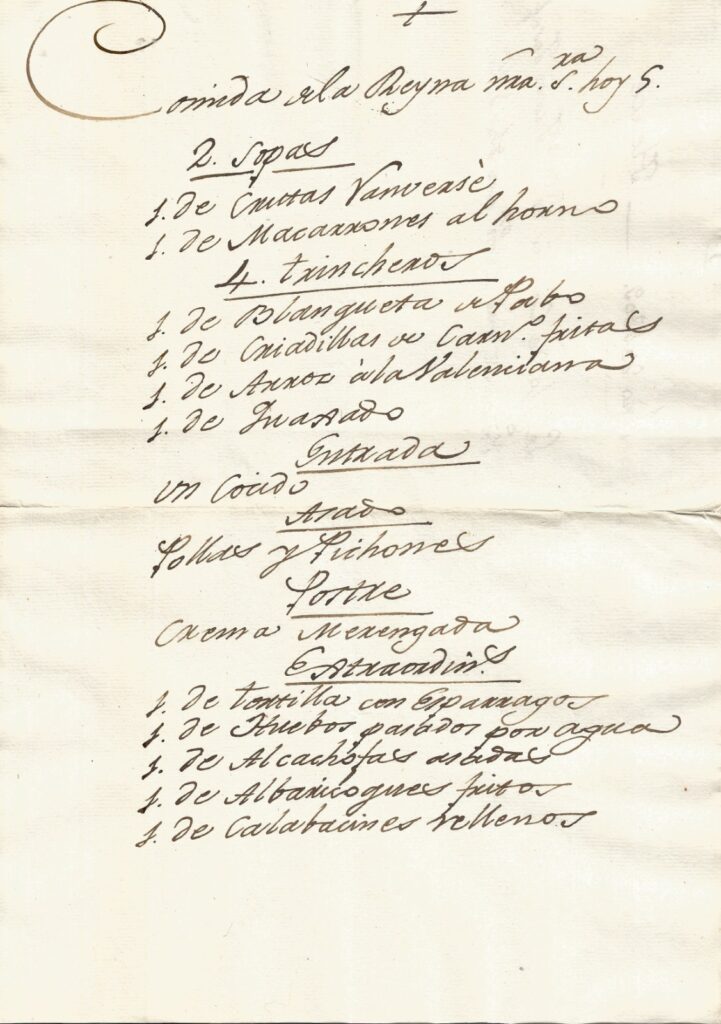 +
Comida de la Reyna nra. S.ra hoy 5.
2. Sopas
1. de Crutas Vanversè
1. de Macarrones al horno
4. trincheros
1. de Blanqueta de Pabo
1. de Criadillas de Carn.o fritas
1. de Arroz à la Valenciana
1. de Guasado
Entrada
Un Cocido
Asado
Pollas y Pichones
Postre
Crema Merengada
Extraordin.s
1. de tortilla con Esparragos
1. de Huebos pasados por agua
1. de Alcachofas asadas
1. de Albaricoques fritos
1. de Calabacines rellenos